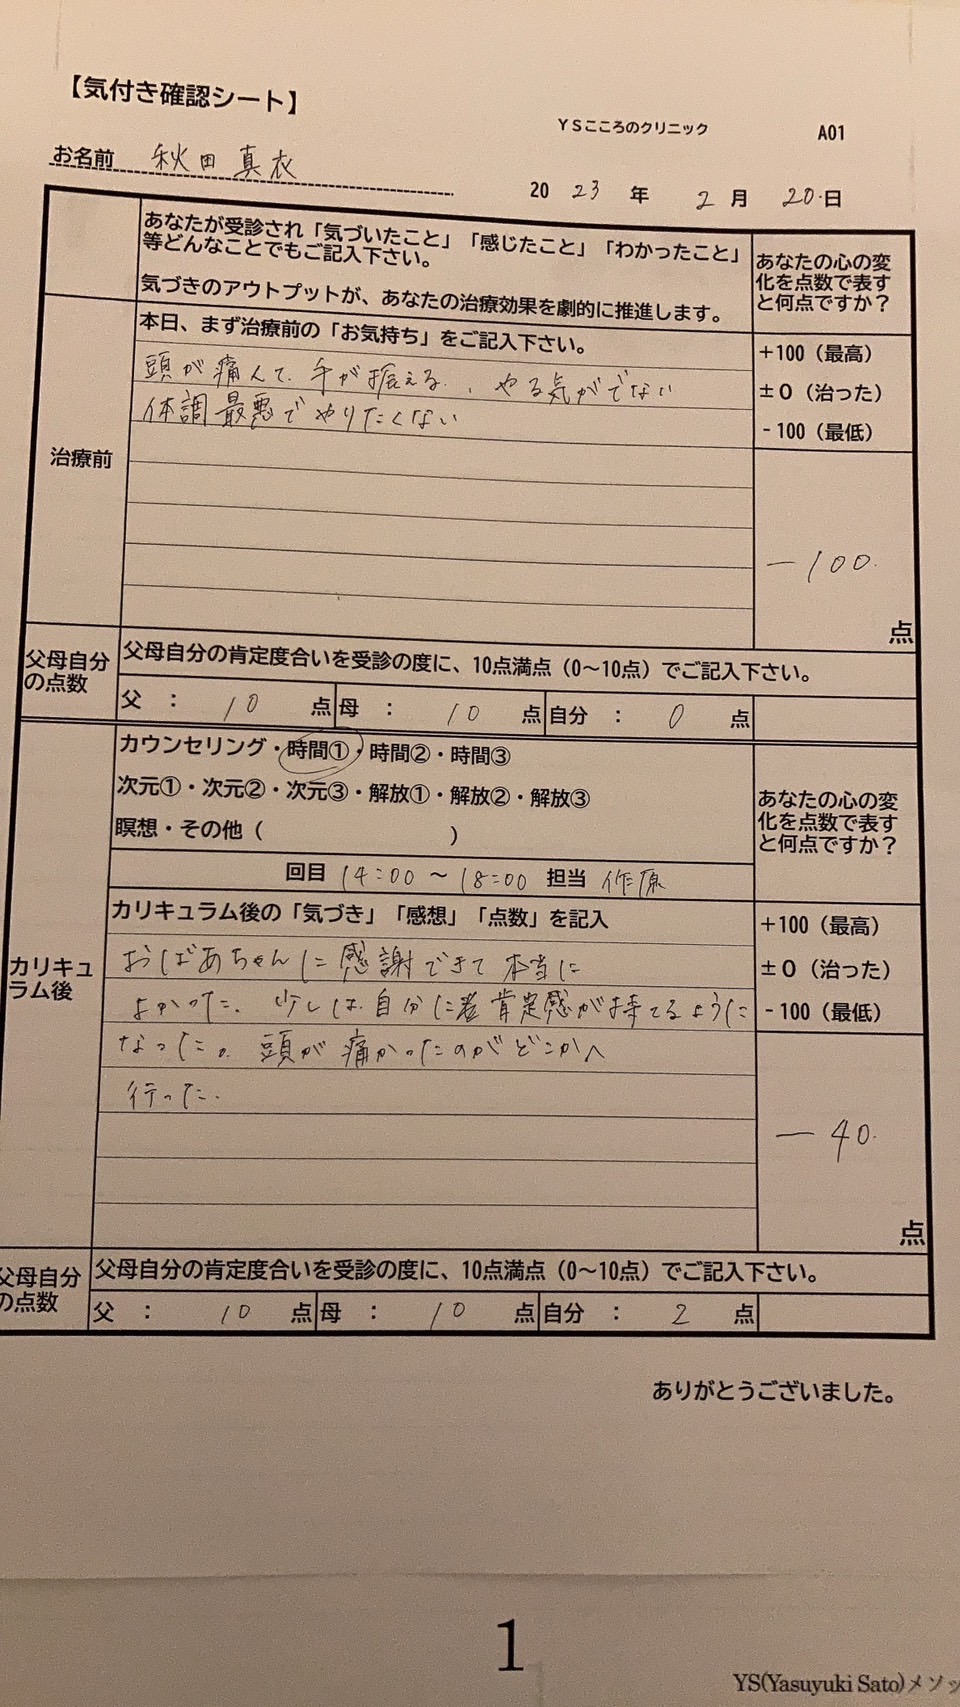 【気付き確認シート】
YSこころのクリニック
A01
お名前 秋田 真衣
20 23 年 2 月 20 日
あなたが受診され「気づいたこと」「感じたこと」「わかったこと」
等どんなことでもご記入下さい。
気づきのアウトプットが、あなたの治療効果を劇的に推進します。
あなたの心の変
化を点数で表す
と何点ですか？
治療前
本日、まず治療前の「お気持ち」をご記入下さい。
頭が痛んで、手が振える、やる気がでない
体調最悪でやりたくない
+100（最高）
±0（治った）
-100（最低）
-100.
点
父母自分
の点数
父母自分の肯定度合いを受診の度に、10点満点（0〜10点）でご記入下さい。
父 ： 10 点 母 ： 10 点 自分 ： 0 点
カウンセリング・時間①・時間②・時間③
次元①・次元②・次元③・解放①・解放②・解放③
瞑想・その他（ ）
回目 14:00 〜 18:00 担当 作原
あなたの心の変
化を点数で表す
と何点ですか？
カリキュ
ラム後
カリキュラム後の「気づき」「感想」「点数」を記入
おばあちゃんに感謝できて本当に
よかった。少しは自分に肯定感が持てるように
なった。頭が痛かったのがどこかへ
行った.
+100（最高）
±0（治った）
-100（最低）
-40.
点
父母自分
の点数
父母自分の肯定度合いを受診の度に、10点満点（0〜10点）でご記入下さい。
父 ： 10 点 母 ： 10 点 自分 ： 2 点
ありがとうございました。
1
YS(Yasuyuki Sato)メソッ